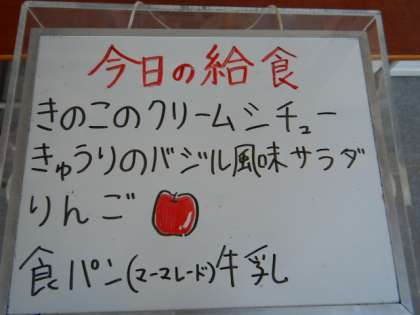 今日の給食
きのこのクリームシチュー
きゅうりのバジル風味サラダ
りんご
食パン(マーマレード)牛乳